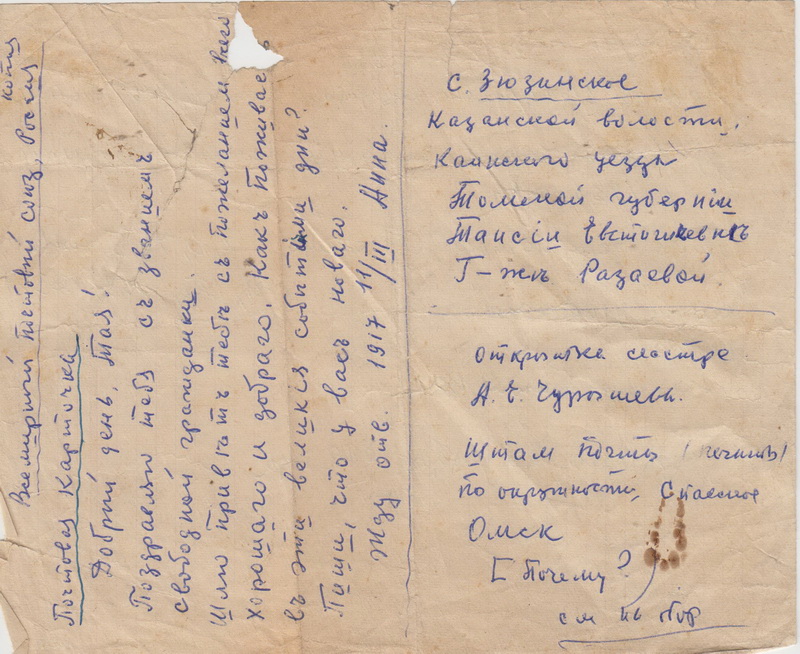 копия
Всемирный почтовый союз, Россия
Почтовая Карточка
Добрый день, Тая!
Поздравляю тебя съ званиемъ
свободной гражданки.
Шлю привѣтъ тебѣ съ пожеланием всего
хорошаго и добраго. Какъ поживае
въ эти великія события дни?
Пиши, что у васъ новаго.
Жду отв. 1917 11/III Анна.
с. Зюзинское
Казанской волости,
Каинского уезда
Томской губерніи
Таисіи Евстогиевнѣ
Г-жѣ Разаевой
открытка сестре
А. Е. Чурошева.
Штам почты (печать)
по окружности, Спасское
Омск
[Почему?
см на обор